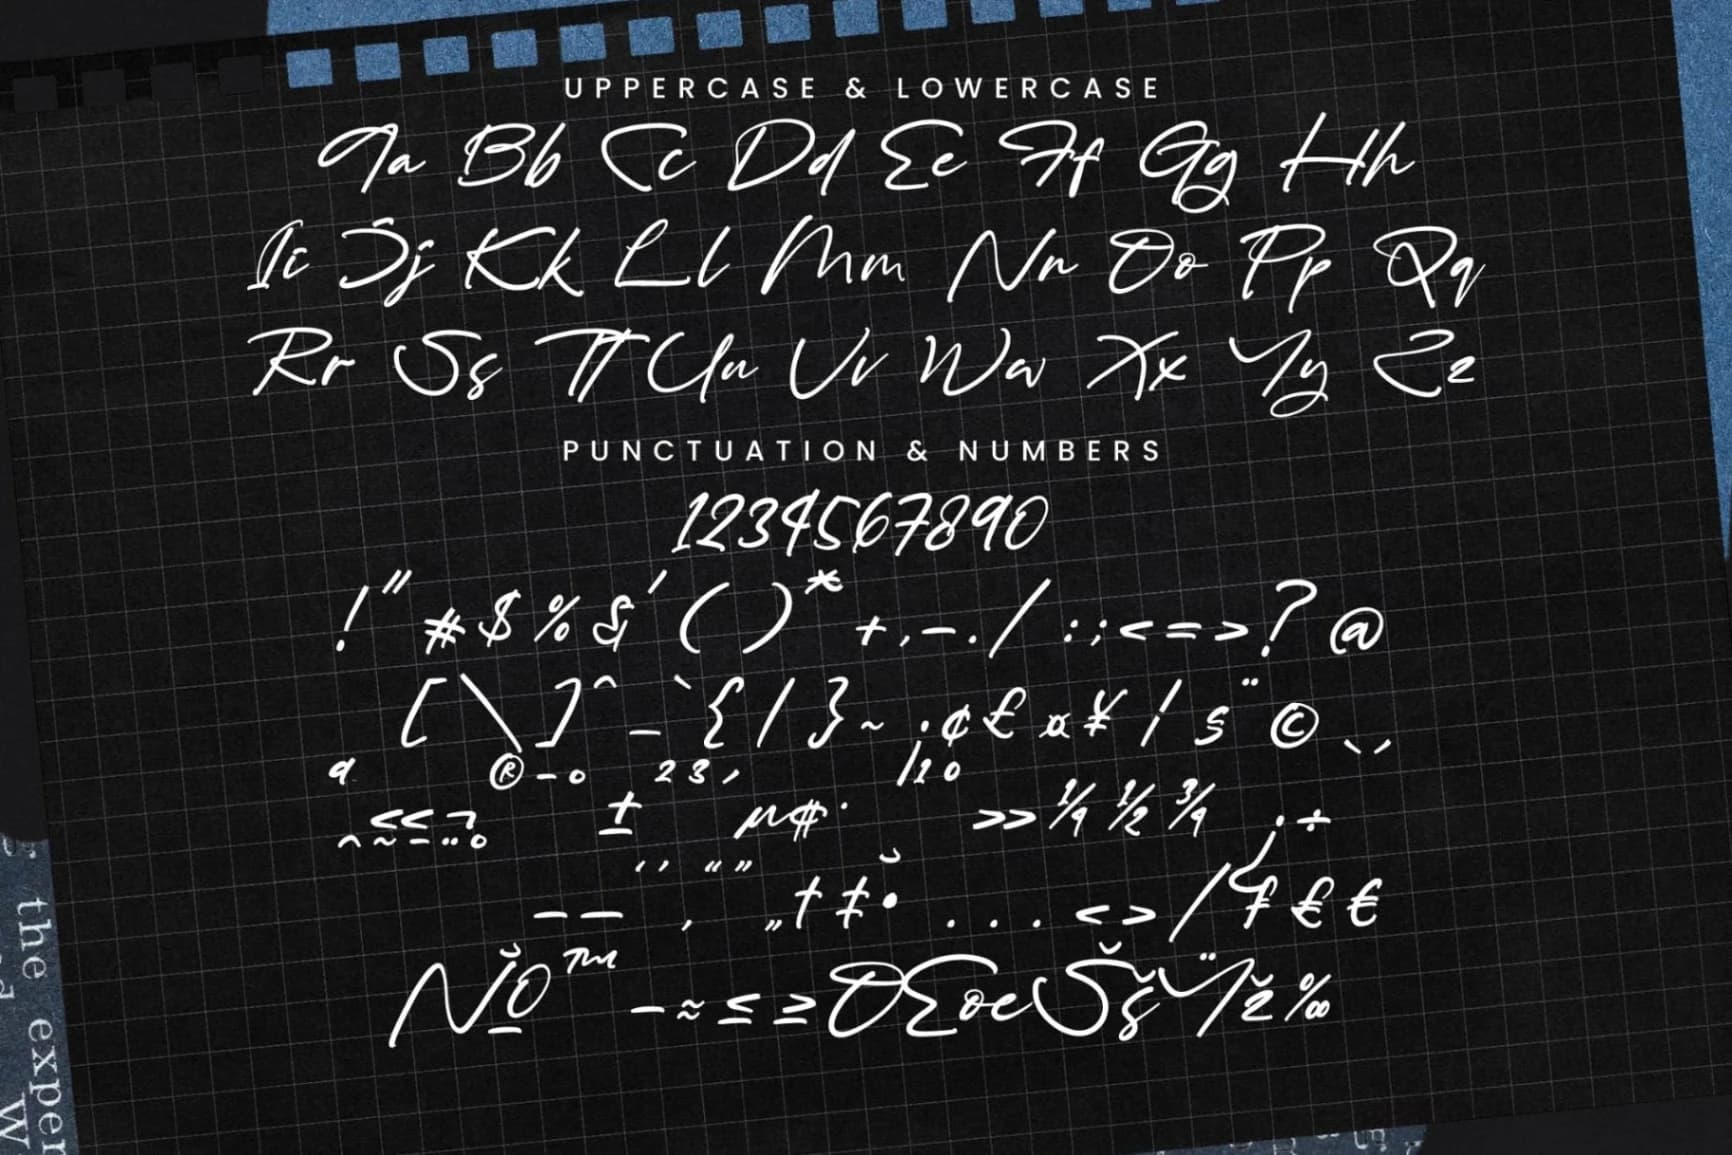 UPPERCASE & LOWERCASE
Aa Bb Cc Dd Ee Ff Gg Hh
Ii Jj Kk Ll Mm Nn Oo Pp Qq
Rr Ss Tt Uu Vv Ww Xx Yy Zz
PUNCTUATION & NUMBERS
1234567890
! " # $ % & ' ( ) * + , - . / : ; < = > ? @
[ \ ] ^ _ ` { | } ~ ¡ ¢ £ ¤ ¥ ¦ § ¨ ©
ª ® ¯ ° ² ³ ´ ¹ º
« ¬ ± µ ¶ · » ¼ ½ ¾ ¿ ÷
– — ‚ „ † ‡ • . . . ‹ › ⁄ ₣ ₤ €
№ ™ − ≈ ≤ ≥ Œ œ Š š Ÿ ž ‰
the exper
W